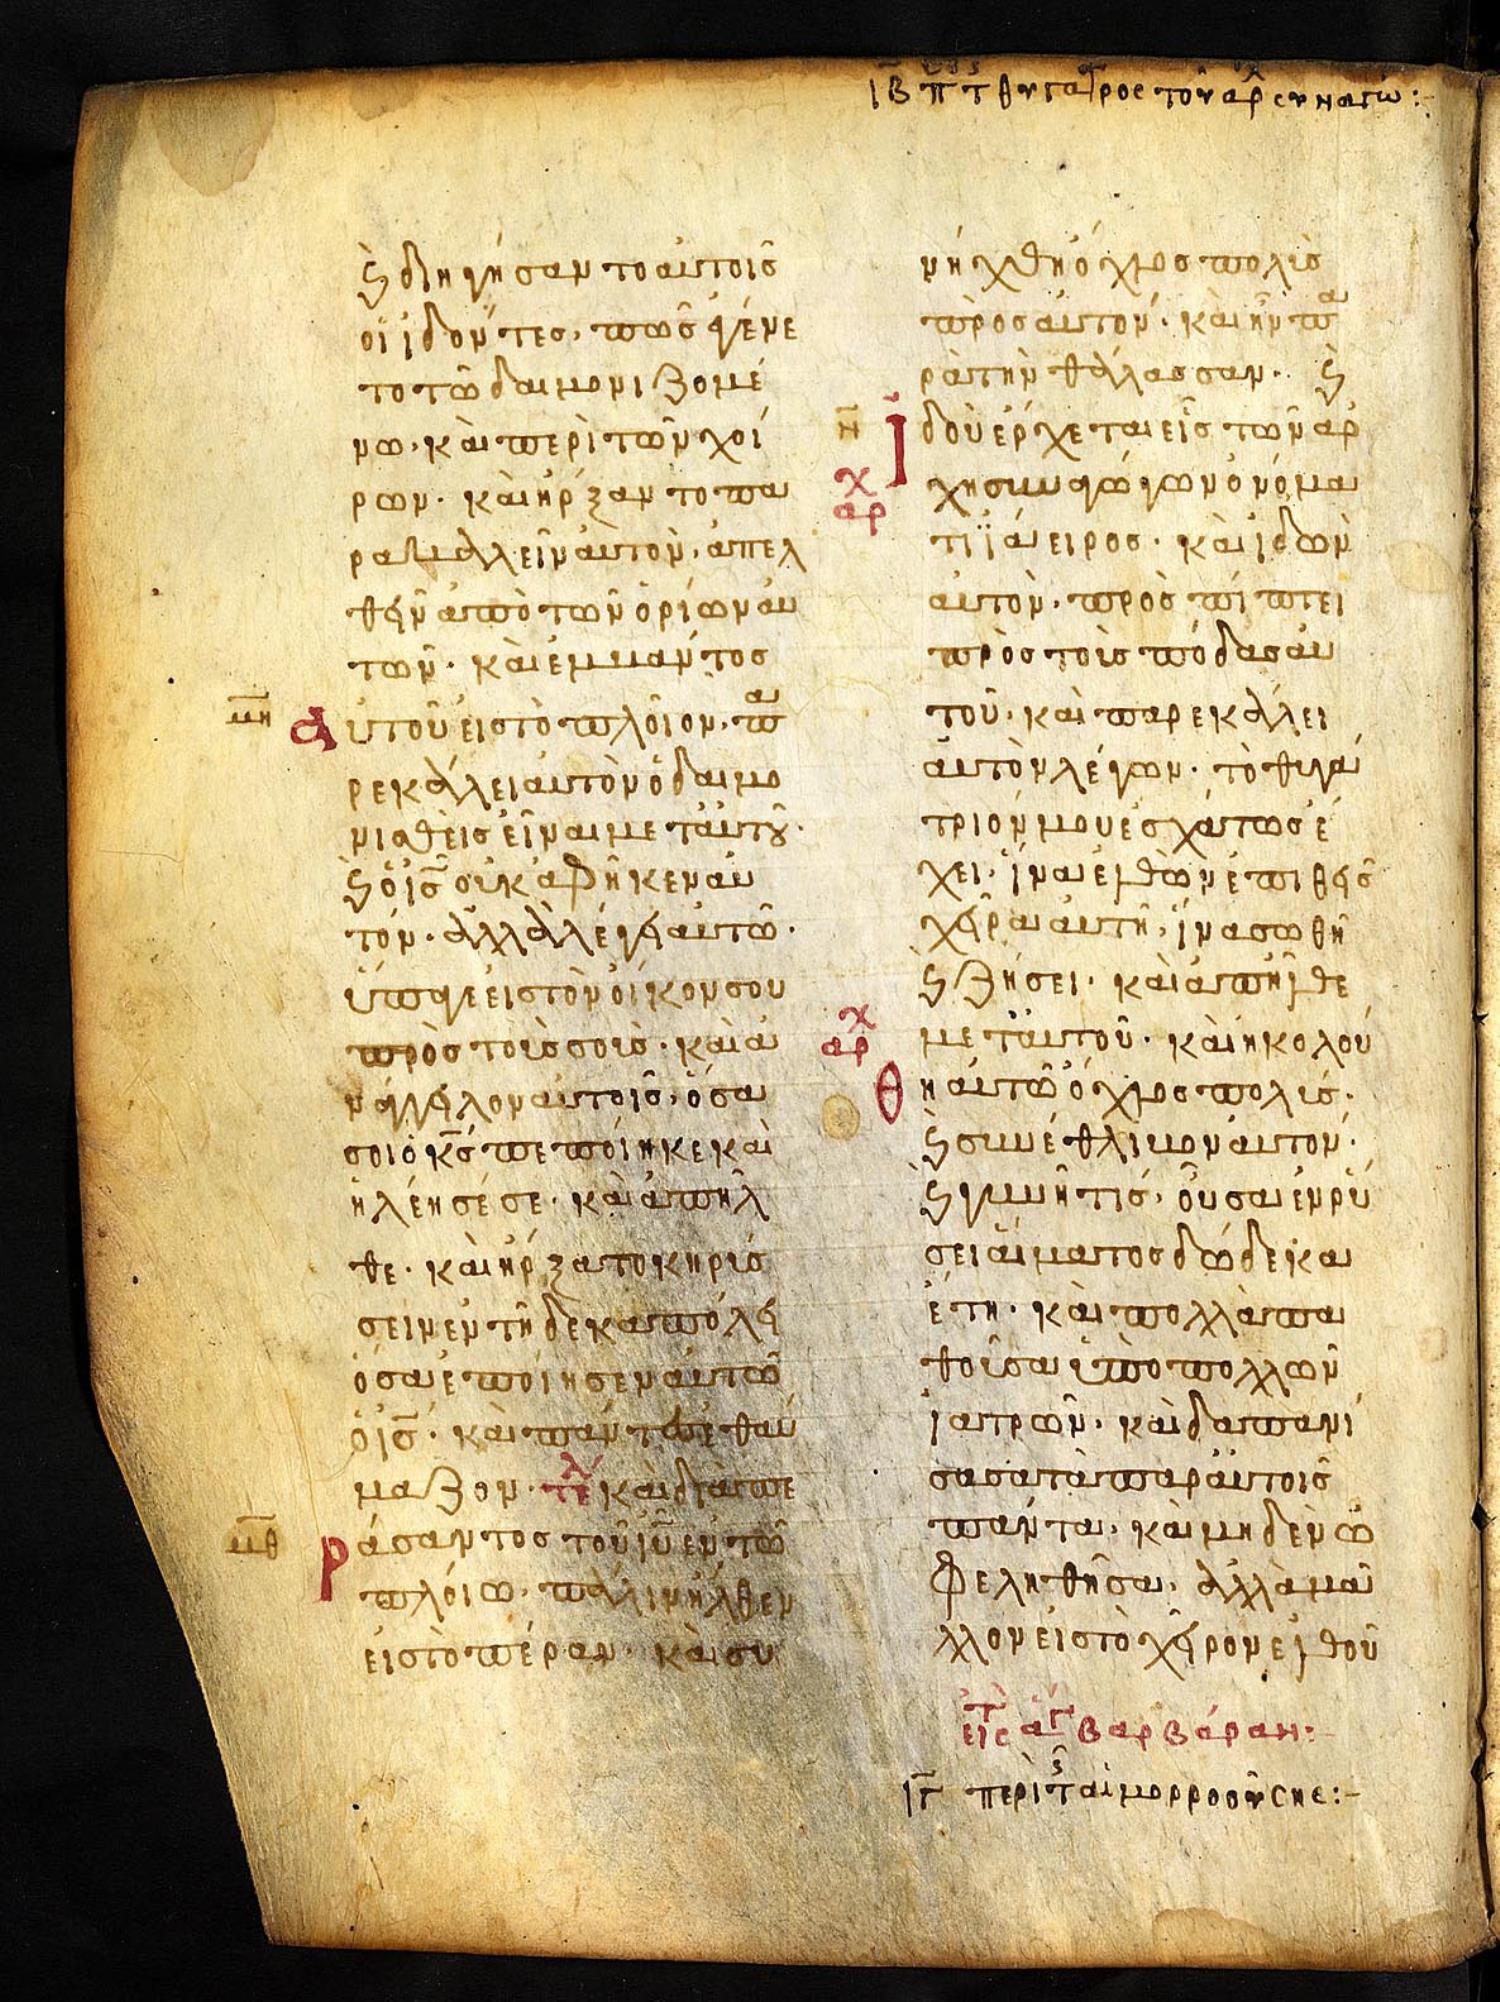 ιβ π τ θυγατρος του αρχισυναγω:
ϗ διηγήσαντο αὐτοῖς
οἱ ἰδόντες, πῶς ἐγένε
το τῶ δαιμονιζομέ
νω, καὶ περὶ τῶν χοί
ρων. καὶ ἤρξαντο πα
ρακαλεῖν αὐτὸν, ἀπελ
θεῖν ἀπὸ τῶν ὁρίων αὐ
τῶν. καὶ ἐμβάντος
μη αὐτοῦ εἰς τὸ πλοῖον, πα
ρεκάλει αὐτὸν ὁ δαιμο
νισθεὶς εἶναι μετ' αὐτοῦ.
ϗ ὁ ις οὐκ ἀφῆκεν αὐ
τόν. ἀλλὰ λέγει αὐτῶ.
ὕπαγε εἰς τὸν οἶκον σου
πρὸς τοὺς σοὺς. καὶ ἀ
νάγγειλον αὐτοῖς, ὅσα
σοι ὁ κς πεποίηκε καὶ
ἠλέησέ σε. καὶ ἀπῆλ
θε. καὶ ἤρξατο κηρύσ
σειν ἐν τῆ δεκαπόλει
ὅσα ἐποίησεν αὐτῶ
ὁ ις. καὶ πάντες ἐθαύ
μαζον. τελ καὶ διαπε
μθ ράσαντος τοῦ ιυ ἐν τῶ
πλοίω, πάλιν ἦλθεν
εἰς τὸ πέραν. καὶ συ
νήχθη ὄχλος πολὺς
πρὸς αὐτόν. καὶ ἦν πα
ρὰ τὴν θάλασσαν. ϗ
ν ἰδοὺ ἔρχεται εἷς τῶν ἀρ
χισυναγώγων ὀνόμα
χ
αρ
τι ϊάειρος. καὶ ἰδὼν
αὐτὸν, προσπίπτει
πρὸς τοὺς πόδας αὐ
τοῦ, καὶ παρεκάλει
αὐτὸν λέγων. τὸ θυγά
τριόν μου ἐσχάτως ἔ
χει. ἵνα ἐλθὼν ἐπιθῆς
χεῖρα αὐτῆ, ἵνα σωθῆ
ϗ ζήσει. καὶ ἀπῆλθε
χ
αρ
μετ' αὐτοῦ. καὶ ἠκολού
θη αὐτῶ ὄχλος πολύς.
ϗ συνέθλιβον αὐτόν.
ϗ γυνή τις, οὖσα ἐν ῥύ
σει αἵματος δώδεκα
ἔτη. καὶ πολλὰ πα
θοῦσα ὑπὸ πολλῶν
ἰατρῶν. καὶ δαπανή
σασα τὰ παρ' αὐτοῖς
πάντα, καὶ μηδὲν ὠ
φεληθῆσα, ἀλλὰ μᾶ
λλον εἰς τὸ χεῖρον ἐλθοῦ
εἰς τ ἁγ βαρβάραν:
ιγ περὶ τ αἱμορροούσης:-